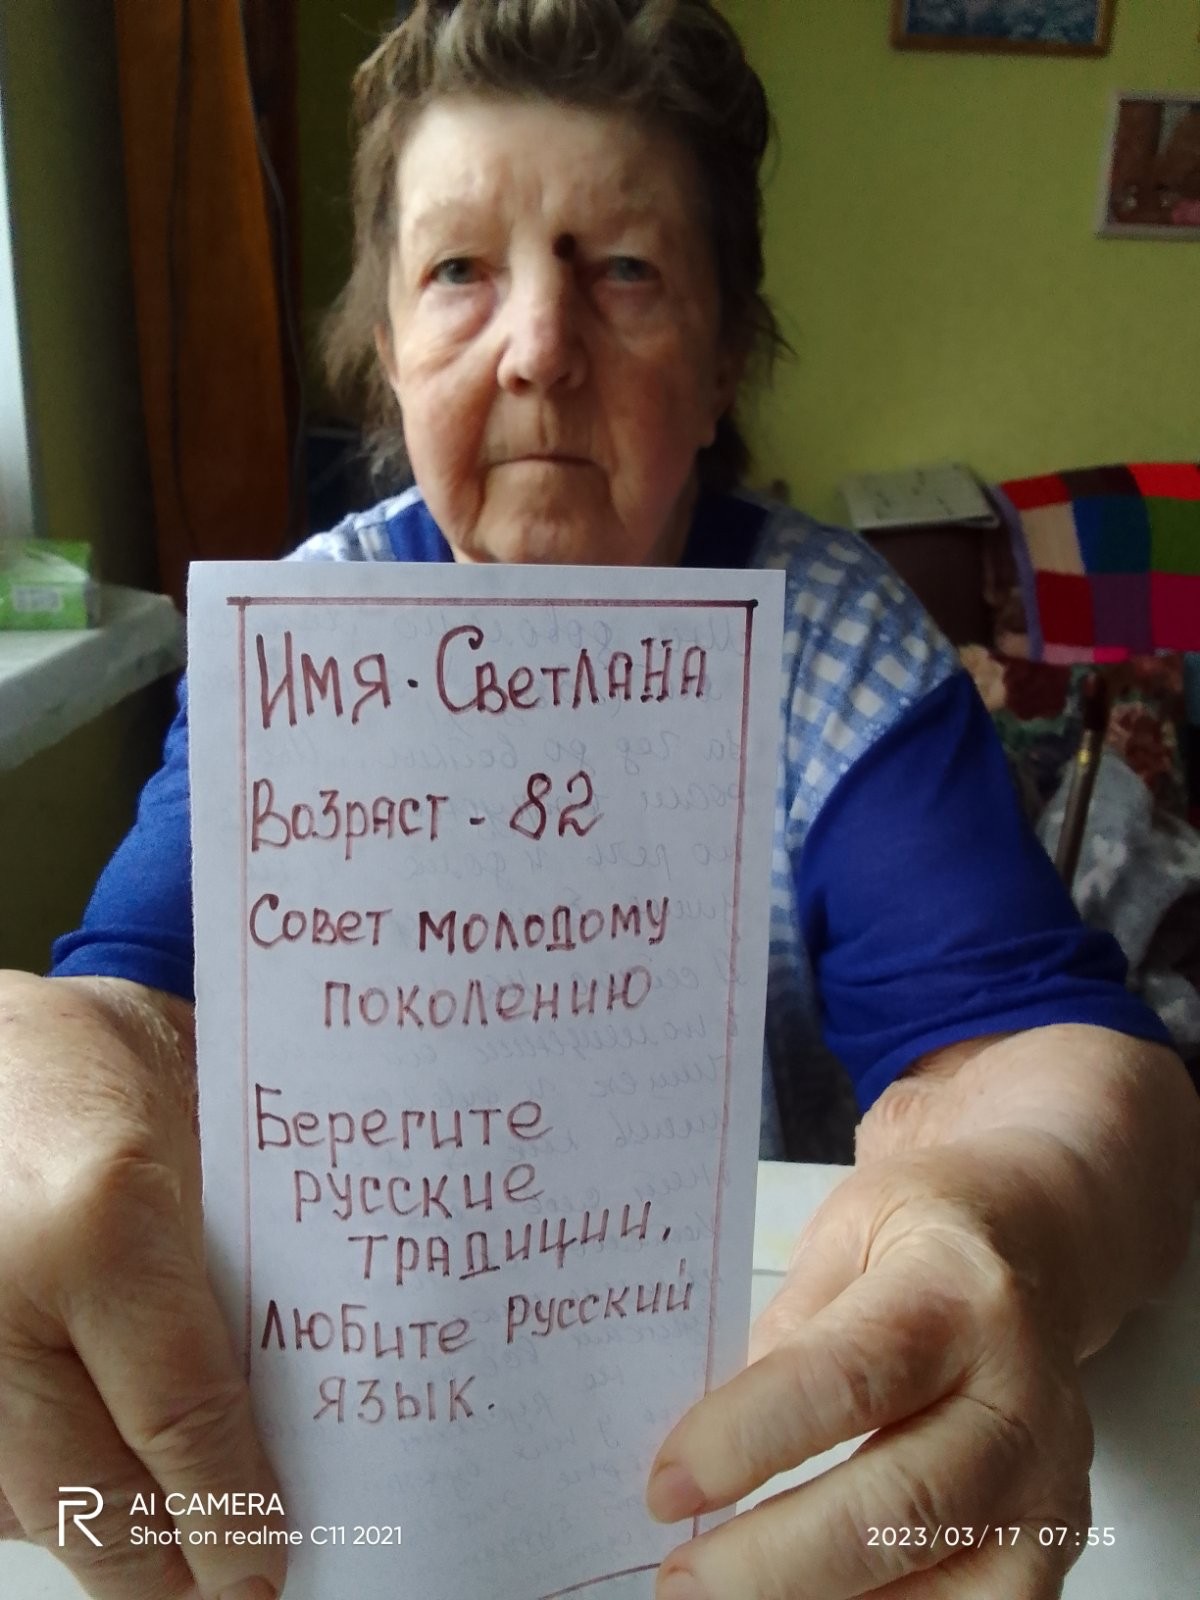 Имя. Светлана
Возраст - 82
Совет молодому
поколению
Берегите
русские
традиции.
Любите русский
язык.
AI CAMERA
Shot on realme C11 2021
2023/03/17 07:55